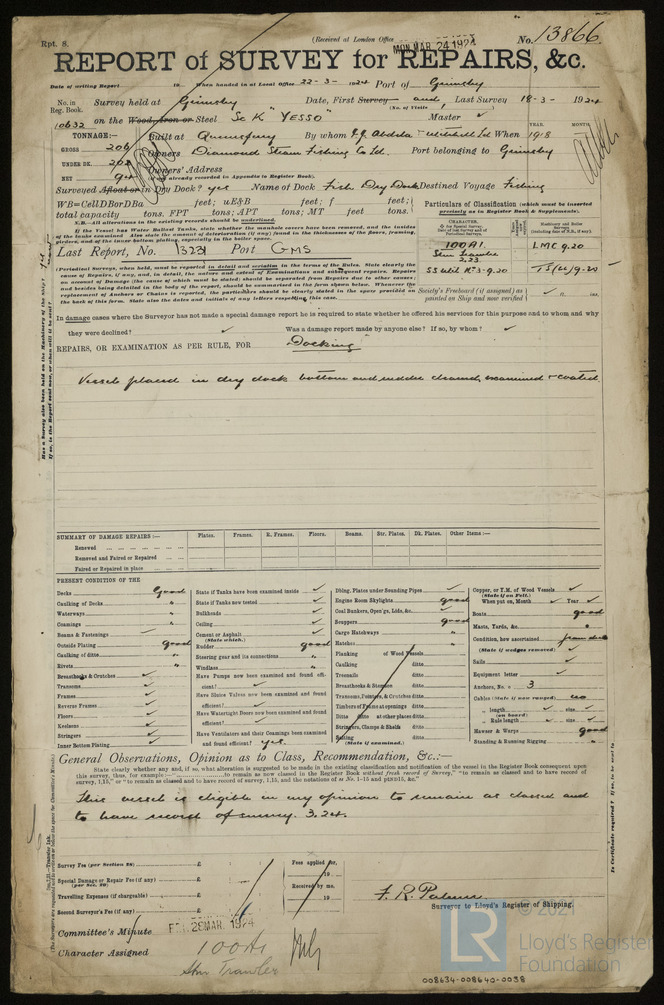 Rpt. 8.
(Received at London Office MON. MAR 24 1924
No. 13866
REPORT of SURVEY for REPAIRS, &c.
Date of writing Report 19 When handed in at Local Office 22-3-1924 Port of Grimsby
No. in Reg. Book. Survey held at Grimsby Date, First Survey and, Last Survey 18-3-1924
(No. of Visits)
10632 on the Wood, Iron or Steel Sc K "YESSO" Master ✓
TONNAGE:—
YEAR. MONTH
Built at Queensferry By whom J.J. Abdela & Mitchell Ld When 1918
GROSS 206
Owners Diamond Steam Fishing Co Ld. Port belonging to Grimsby
UNDER DK.
NET 94
Owners' Address
(if not already recorded in Appendix to Register Book).
Surveyed Afloat or in Dry Dock? yes Name of Dock Fish Dry Dock Destined Voyage Fishing
WB=CellDBorDBa feet; uE&B feet; f feet;
total capacity tons. FPT tons; APT tons; MT feet tons.
N.B.—All alterations in the existing records should be underlined.
If the Vessel has Water Ballast Tanks, state whether the manhole covers have been removed, and the insides of the tanks examined. Also state the amount of deterioration (if any) found in the thicknesses of the floors, framing, girders, and of the inner bottom plating, especially in the boiler space.
Particulars of Classification (which must be inserted precisely as in Register Book & Supplements).
100A1. LMC 9.20
Stm Trawler
3.23
SS Util No 3-9.20 TS(CL) 9.20
Last Report, No. 13231 Port GMS
(Periodical Surveys, when held, must be reported in detail and seriatim in the terms of the Rules. State clearly the cause of Repairs, if any, and, in detail, the nature and extent of Examinations and subsequent repairs. Repairs on account of Damage (the cause of which must be stated) should be separated from Repairs due to other causes; and besides being detailed in the body of the report, should be summarised in the form shown below. Whenever the replacement of Anchors or Chains is reported, the particulars should be clearly stated in the space provided on the back of this form. State also the dates and initials of any letters respecting this case.
Society's Freeboard (if assigned) as painted on Ship and now verified ft. ins.
In damage cases where the Surveyor has not made a special damage report he is required to state whether he offered his services for this purpose and to whom and why
they were declined? ✓ Was a damage report made by anyone else? If so, by whom? ✓
REPAIRS, OR EXAMINATION AS PER RULE, FOR Docking
Vessel placed in dry dock bottom and rudder cleaned, examined & coated
SUMMARY OF DAMAGE REPAIRS:— Plates. Frames. R. Frames. Floors. Beams. Str. Plates. Dk. Plates. Other Items:—
Renewed
Removed and Faired or Repaired
Faired or Repaired in place
PRESENT CONDITION OF THE
Decks Good
Caulking of Decks "
Waterways "
Coamings "
Beams & Fastenings
Outside Plating good
Caulking of ditto "
Rivets "
Breasthooks & Crutches ✓
Transoms ✓
Frames ✓
Reverse Frames ✓
Floors ✓
Keelsons ✓
Stringers ✓
Inner Bottom Plating ✓
State if Tanks have been examined inside ✓
State if Tanks now tested ✓
Bulkheads ✓
Ceiling ✓
Cement or Asphalt ✓
(State which.)
Rudder good
Steering gear and its connections "
Windlass "
Have Pumps now been examined and found efficient? ✓
Have Sluice Valves now been examined and found efficient? ✓
Have Watertight Doors now been examined and found efficient? ✓
Have Ventilators and their Coamings been examined and found efficient? yes.
Dblng. Plates under Sounding Pipes ✓
Engine Room Skylights good
Coal Bunkers, Open'gs, Lids, &c. ✓
Scuppers good
Cargo Hatchways "
Hatches "
Planking of Wood Vessels
Caulking ditto
Treenails ditto
Breasthooks & Stemson ditto
Transoms, Pointers, & Crutches ditto
Timbers of Frame at openings ditto
Ditto ditto at other places ditto
Stringers, Clamps & Shelfs ditto
Salting ditto
(State if examined.)
Copper, or Y.M. of Wood Vessels ✓
(State if on Felt.)
When put on, Month ✓ Year ✓
Boats good
Masts, Yards, &c. "
Condition, how ascertained from deck
(State if wedges removed) ✓
Sails ✓
Equipment letter ✓
Anchors, No. 3
Cables (State if now ranged) no
length ✓ size ✓
(on board)
Rule length ✓ size ✓
Hawser & Warps good
Standing & Running Rigging "
General Observations, Opinion as to Class, Recommendation, &c.:—
State clearly whether any and, if so, what alteration is suggested to be made in the existing classification and notification of the vessel in the Register Book consequent upon this survey, thus, for example:—" to remain as now classed in the Register Book without fresh record of Survey," "to remain as classed and to have record of survey, 1,15," or "to remain as classed and to have record of survey, 1,15, and the notations of
This vessel is eligible in my opinion to remain as classed and
to have record of survey. 3.24.
Survey Fee (per Section 28) £
Special Damage or Repair Fee (if any) £
(per Sec. 28)
Travelling Expenses (if chargeable) £
Second Surveyor's Fee (if any) £
Fees applied for,
19
Received by me,
19
F. R. Palmer
Surveyor to Lloyd's Register of Shipping.
Committee's Minute FRI. 28 MAR. 1924
Character Assigned 100A1
Stm Trawler
© 2021
LR
Lloyd's Register
Foundation
008634-008640-0038